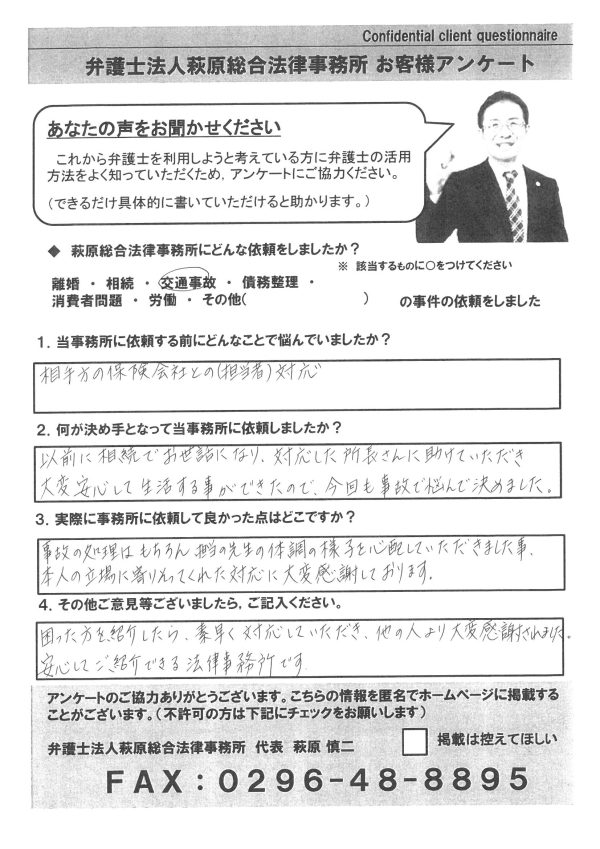 Confidential client questionnaire
弁護士法人萩原総合法律事務所 お客様アンケート
あなたの声をお聞かせください
これから弁護士を利用しようと考えている方に弁護士の活用
方法をよく知っていただくため，アンケートにご協力ください。
（できるだけ具体的に書いていただけると助かります。）
◆ 萩原総合法律事務所にどんな依頼をしましたか？
※ 該当するものに○をつけてください
離婚 ・ 相続 ・ 交通事故 ・ 債務整理 ・
消費者問題 ・ 労働 ・ その他（　　　　　　）　の事件の依頼をしました
1．当事務所に依頼する前にどんなことで悩んでいましたか？
相手方の保険会社との（担当者）対応
2．何が決め手となって当事務所に依頼しましたか？
以前に相続でお世話になり、対応した所長さんに助けていただき
大変安心して生活する事ができたので、今回も事故で悩んで決めました。
3．実際に事務所に依頼して良かった点はどこですか？
事故の処理はもちろん担当の先生の体調の様子を心配していただきました事、
本人の立場に寄りそってくれた対応に大変感謝しております。
4．その他ご意見等ございましたら，ご記入ください。
困った方を紹介したら、素早く対応していただき、他の人より大変感謝されました。
安心してご紹介できる法律事務所です
アンケートのご協力ありがとうございます。こちらの情報を匿名でホームページに掲載する
ことがございます。（不許可の方は下記にチェックをお願いします）
弁護士法人萩原総合法律事務所 代表 萩原 慎二
掲載は控えてほしい
FAX：0296-48-8895